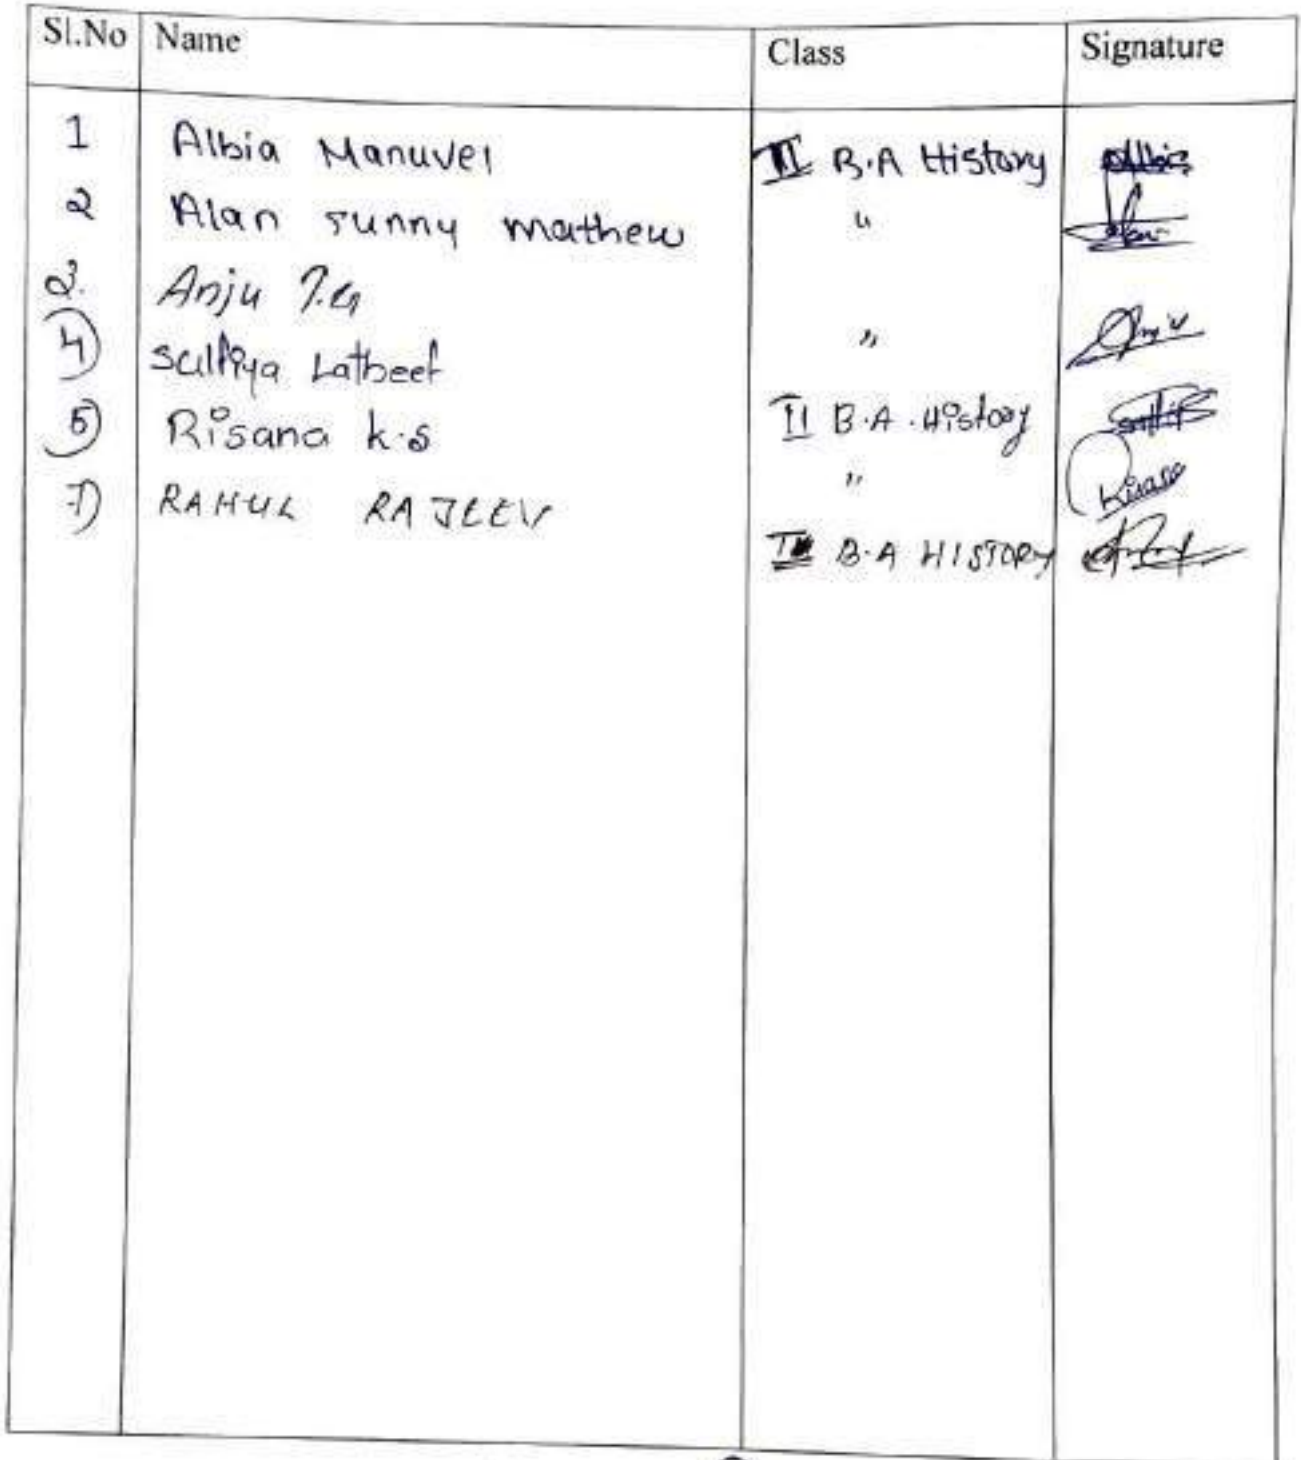 Sl.No Name Class Signature
1 Albia Manuvel II B.A History
2 Alan sunny mathew "
2. Anju "
4) Latheef II B.A. History
5) Risana k.s "
7) RAHUL RAJEEV B.A HISTORY